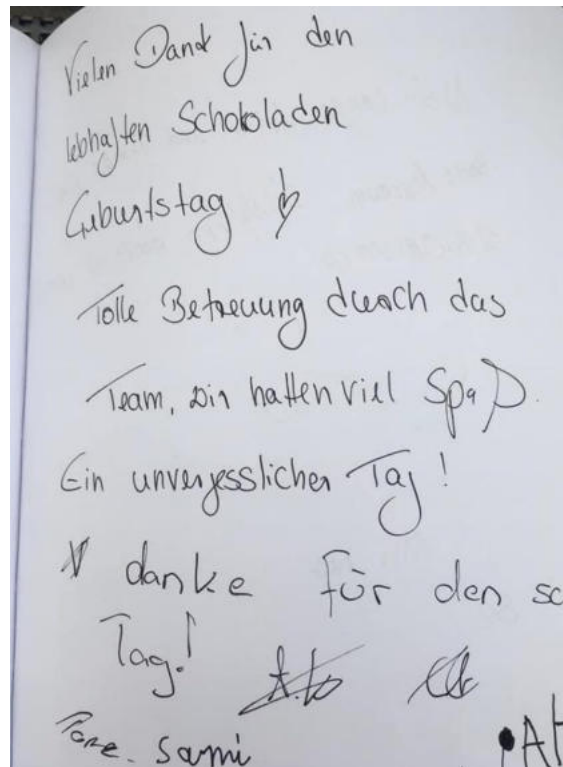 Vielen Dank für den
lebhaften Schokoladen
Geburtstag !
Tolle Betreuung durch das
Team, wir hatten viel Spaß.
Ein unvergesslicher Tag !
danke für den sc
Tag!
Sami